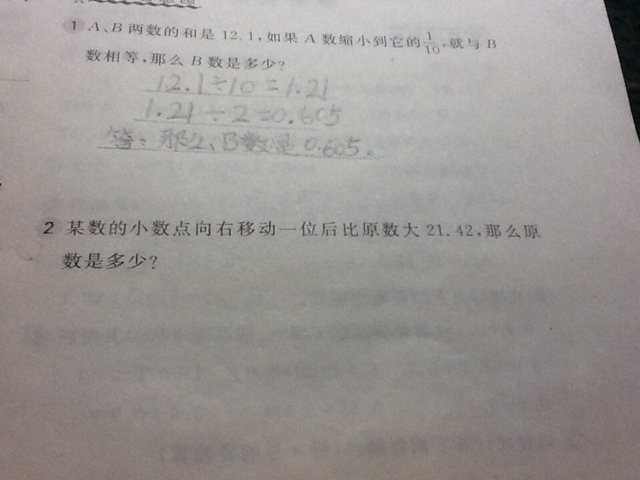 1 A、B两数的和是12.1,如果A数缩小到它的1/10,就与B
数相等,那么B数是多少?
12.1÷10=1.21
1.21÷2=0.605
答:那么、B数是0.605。
2 某数的小数点向右移动一位后比原数大21.42,那么原
数是多少?